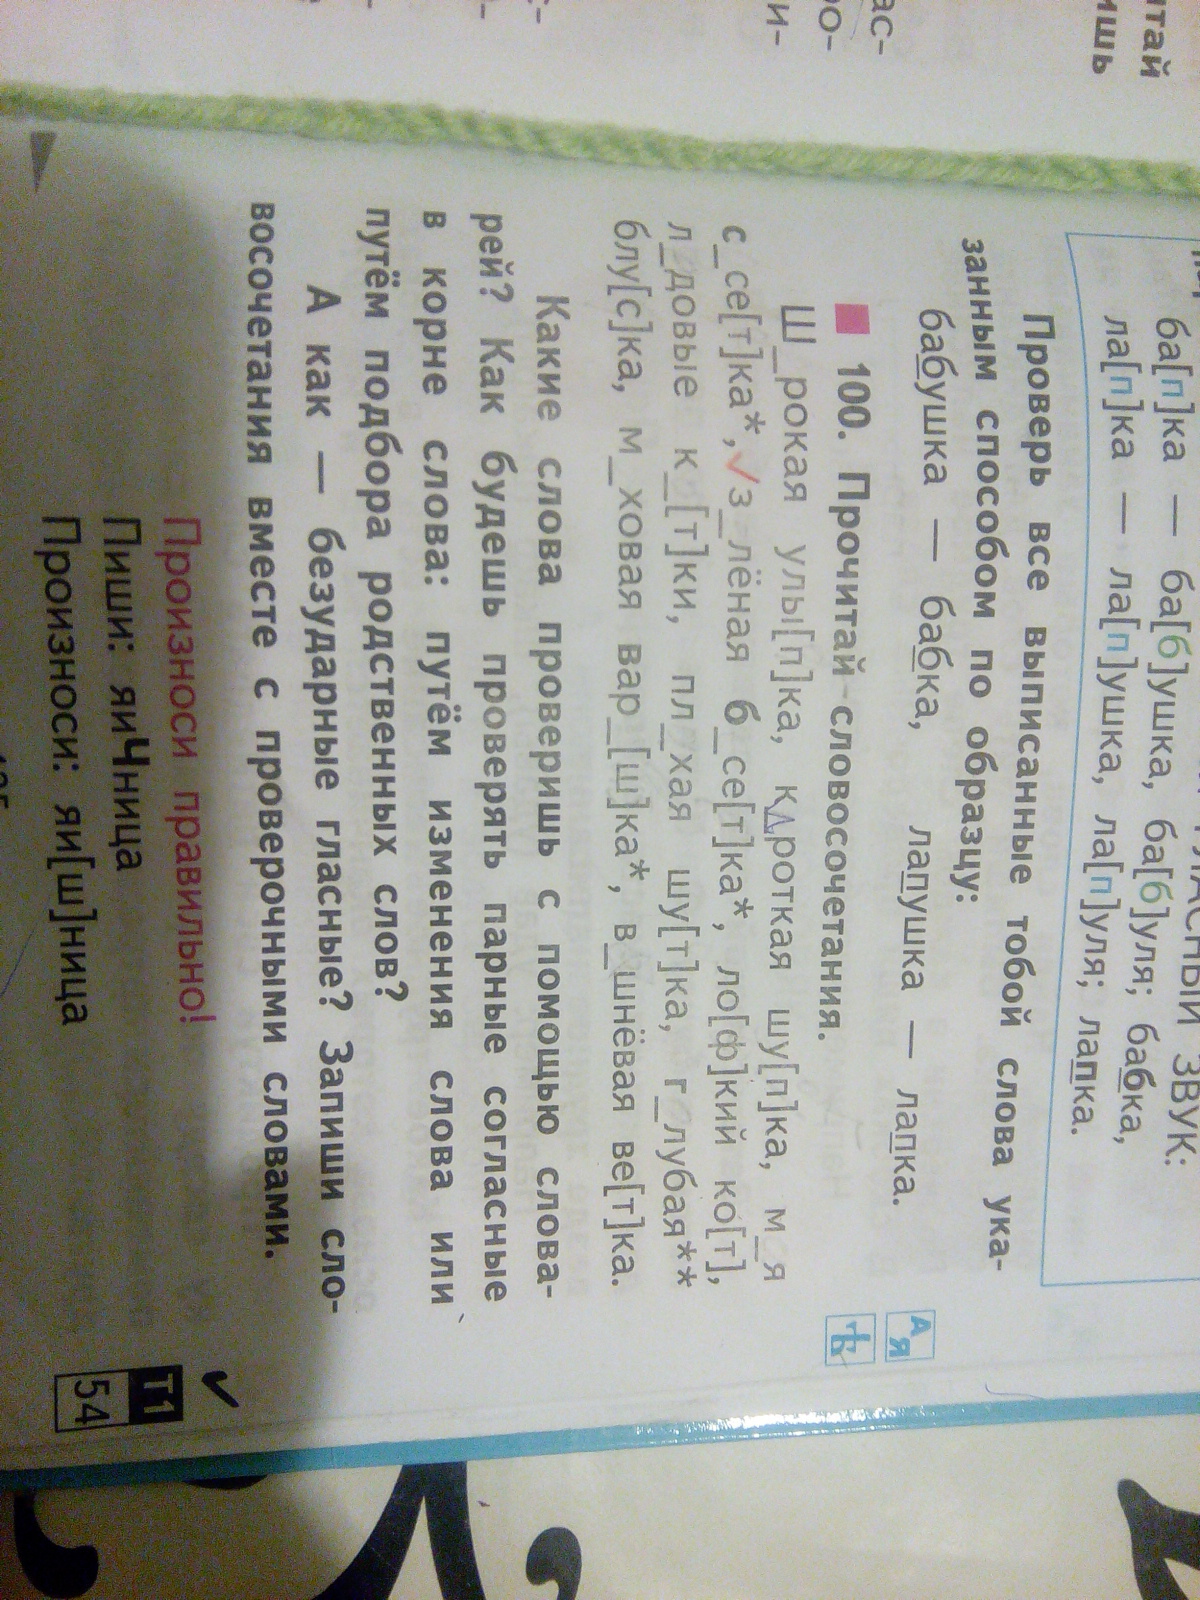 итай
ишь
ас-
ро-
и-
ЛАСНЫЙ ЗВУК:
ба[п]ка — ба[б]ушка, ба[б]уля; бабка,
ла[п]ка — ла[п]ушка, ла[п]уля; лапка.
Проверь все выписанные тобой слова ука-
занным способом по образцу:
бабушка — бабка, лапушка — лапка.
Ая
ть
100. Прочитай словосочетания.
Ш_рокая улы[п]ка, кⱭроткая шу[п]ка, м_я
с_се[т]ка*, з_лёная б_се[т]ка*, ло[ф]кий ко[т],
л_довые к_[т]ки, пл_хая шу[т]ка, г_лубая**
блу[с]ка, м_ховая вар_[ш]ка*, в_шнёвая ве[т]ка.
Какие слова проверишь с помощью слова-
рей? Как будешь проверять парные согласные
в корне слова: путём изменения слова или
путём подбора родственных слов?
А как — безударные гласные? Запиши сло-
восочетания вместе с проверочными словами.
Произноси правильно!
Пиши: яиЧница
Произноси: яи[ш]ница
Т1
54